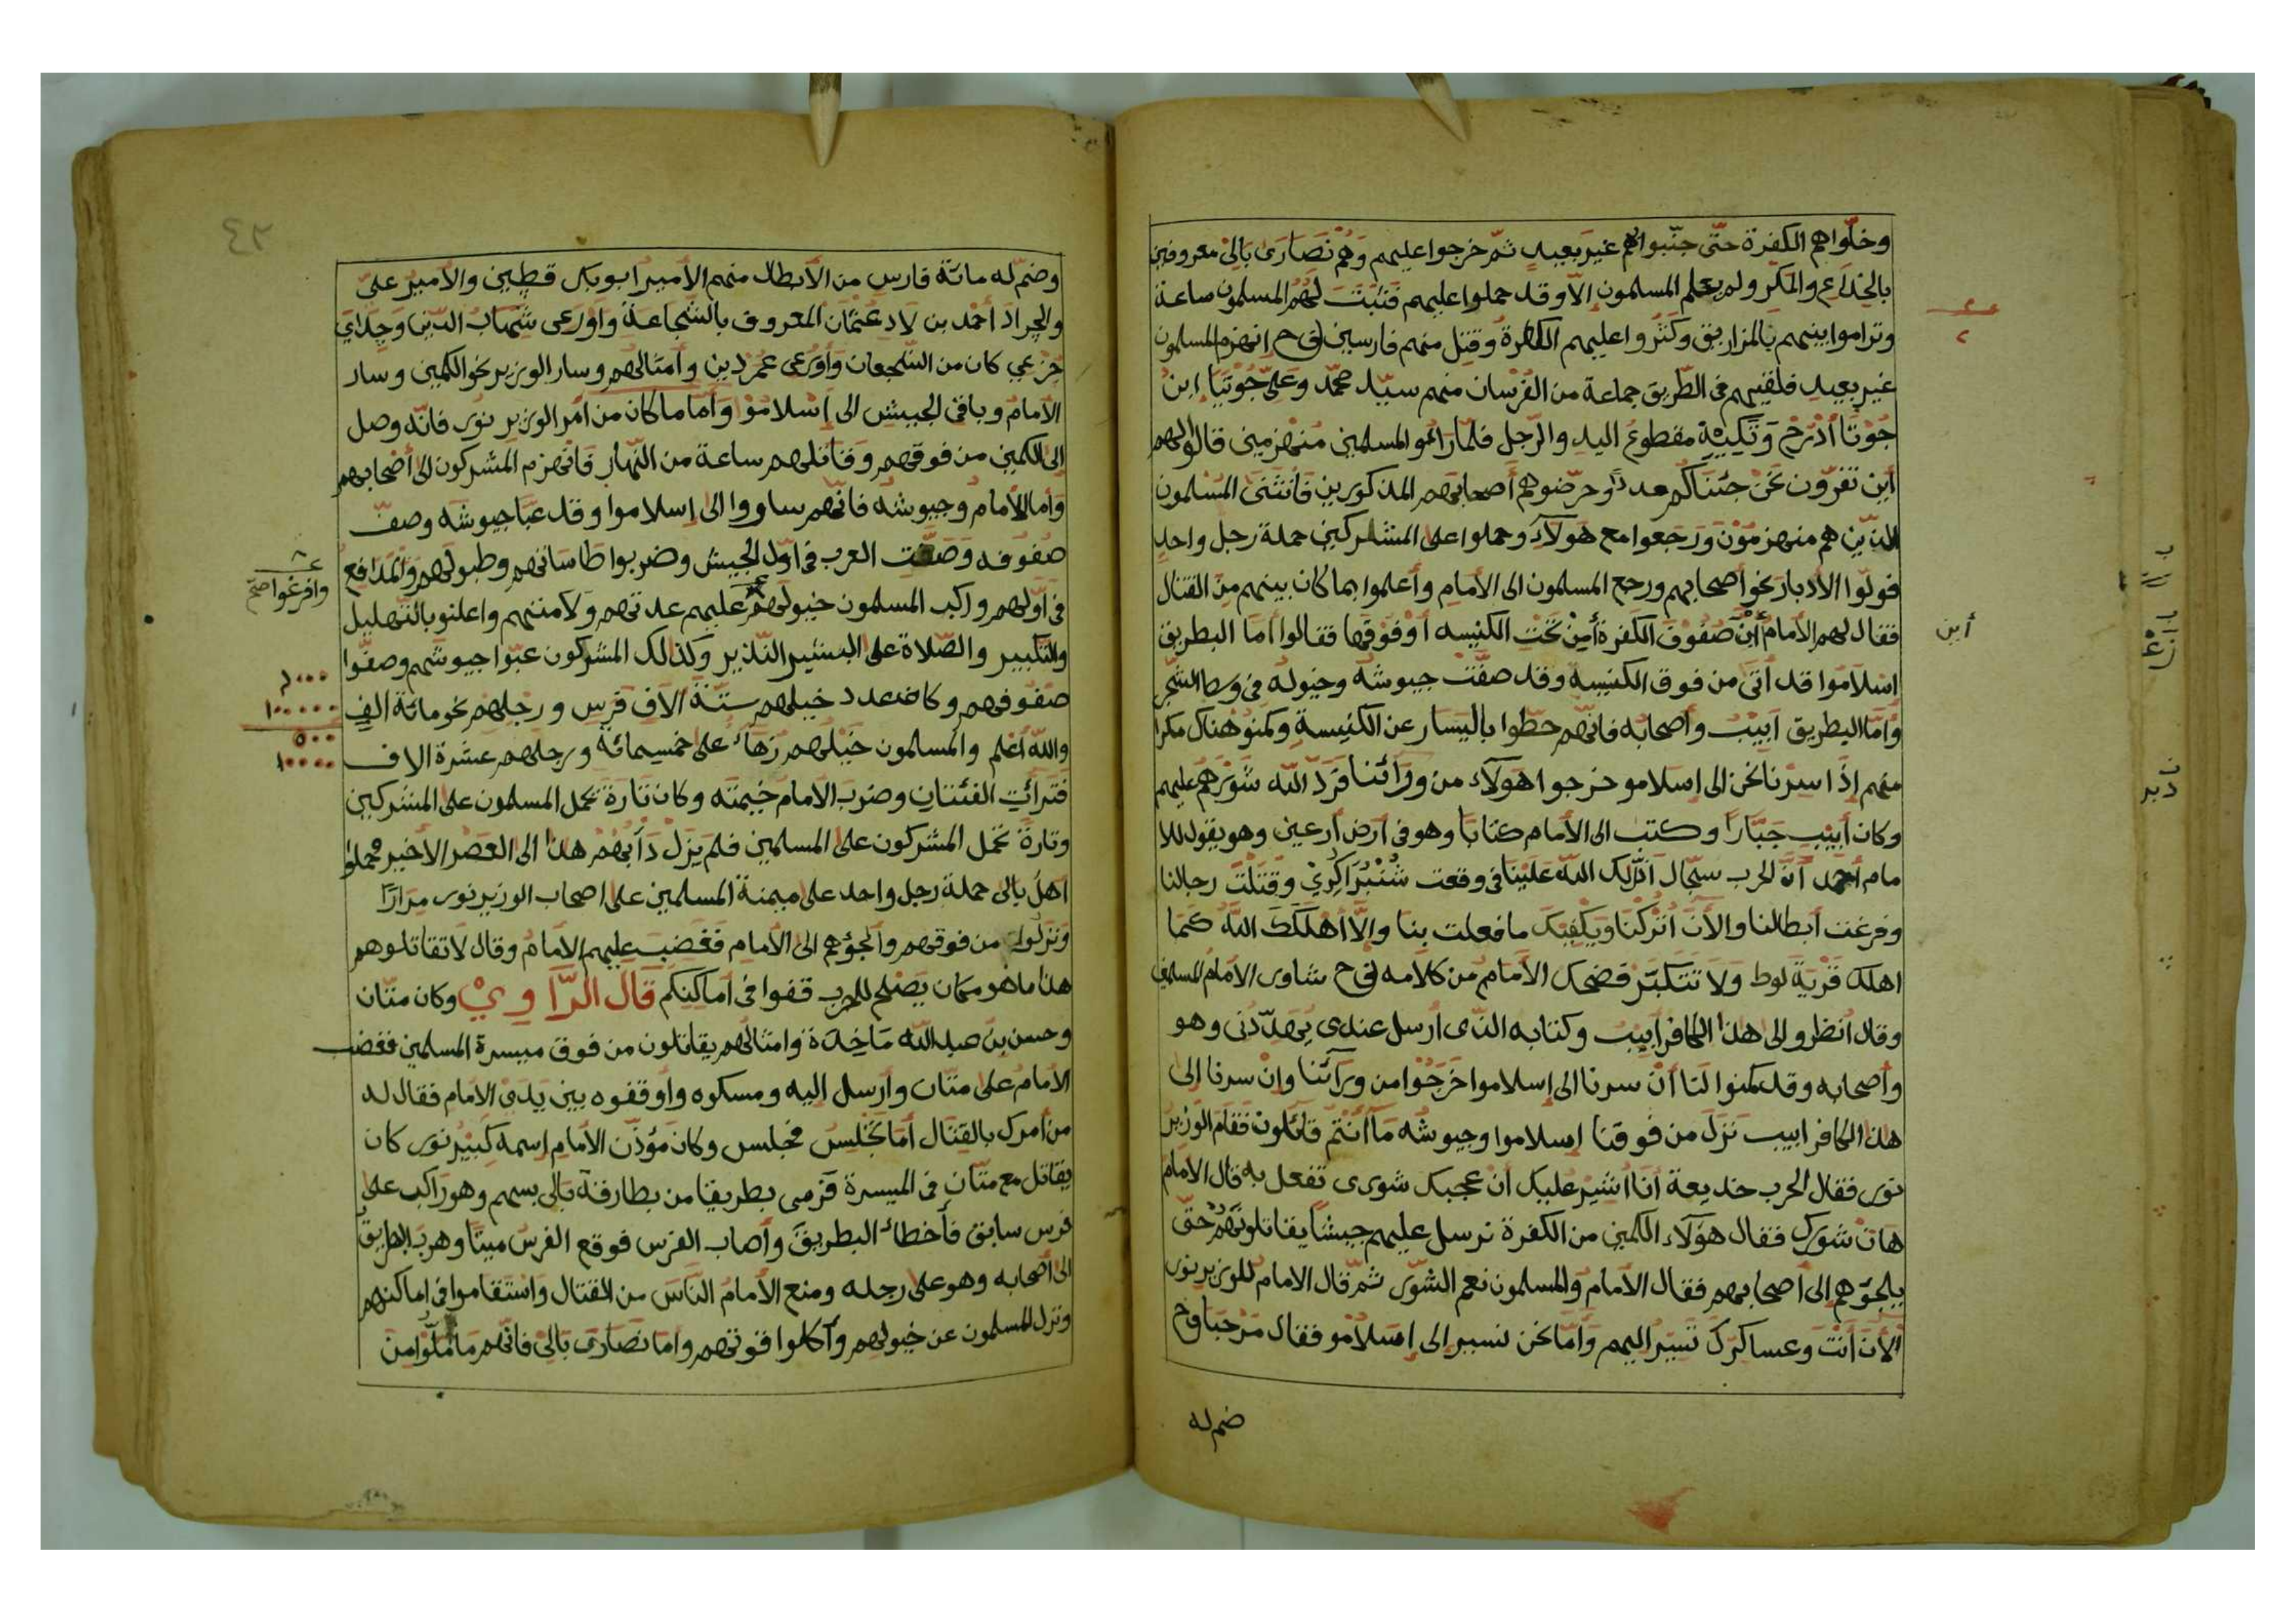 وخلّواهم الكفرة حتّى جنّبواهم غير بعيد ثمّ خرجوا عليهم وهُم نَصَارَى بَالِيْ معروفين
بالخداع والمكر ولم يعلم المسلمون إلاّ وقد حملوا عليهم فَثَبَتَ لَهُم المسلمون ساعة
وتراموا بينهم بالمزاريق وكثروا عليهم الكفرة وقتل منهم فارسين فح إنهزم المسلمون
غير بعيد فلقيهم في الطّريق جماعة من الفُرْسان منهم سيّد محمّد وعَليّ جُوْتِيَا إبن
جُوْتَا أذرح وَتَكِيَةِ مقطوعُ اليدِ والرّجل فلمّا راهو المسلمين مُنهزمين قالوا لهم
أين تفرّون نَحْنُ جئناكُم مدداً وحرّضوهم أصحابهم المذكورين فأنثنى المسلمون
الذين هم منهزمُوْنَ وَرَجَعوا مع هَولآءِ وحملوا على المشركين حملة رجل واحد
فولّوا الأدبار نحو أصحابهم ورجع المسلمون الى الأمام وأعلموا بما كان بينهم من القتال
فقال لهم الأمام أَيْنَ صُفُوْف الكَفرة أمِنْ تَحْتِ الكنيسه أوفوقها فقالوا أمّا البطريق
إسلامُوا قد أتىَ من فوق الكنيسة وقد صفّت جيوشهُ وخيولهُ في وسط الشّجر
وأمّا البطريق أَبِيْب وأصحابُه فانّهم حطّوا باليَسار عن الكنيسة وكمنو هناك مكرا
منهم إذا سِرْنا نحن إلى إسلامو خرجوا هَولآء من وَرَائنا فَرَدّ الله شَوْرَهُم عليهم
وكان أبيب جَبّارا وكتب الى الأمام كتابا وهو في أرض أرعين وهو يقول للا
مام أحمد أنّ الحرب سِجَال أنزلك الله عَلَيْنا في وقعت شُنْبُرَا كُرِيْ وَقَتَلْتَ رجالنا
وفرغت أبطالنا والأنَ أتركنا وَيَكْفِيْك ما فعلت بنا والاّ أهلَكَكَ اللهُ كما
اهلك قَرْيَةَ لوط وَلاَ تتكبّر فضحك الأمام من كلامه فح شاوى الأمام المسلمين
وقال أنظرو الى هذا الكافر أبيب وكتابه الذّى أرسل عندى يُهَدّدُنى وهو
وأصحابه وقد كمنوا لَنَا أنْ سرنا الى إسلاموا خَرَجُوا من ورائنا وإنْ سرنا إلى
هذا الكافر ابيب نَزَلَ من فوقنا إسلاموا وجيوشه مَا أنْتُم قائلون فقام الوزيرُ
نور فقال الحرب خديعة أنَا أُشيْر عليك أنْ عجبك شورى تفعل به قال الأمام
هات شورك فقال هؤلآء الكمين من الكفرة نرسل عليهم جيشًا يقاتلونَهُم حتّى
يلجئوهم إلى أصحابهم فقال الأمام والمسلمون نعم الشّور ثمّ قال الامام للوزير نور
الأن أنْت وعساكرك تَسِيرُ اليهم وأمّا نحن نسير إلى إسلامو فقال مَرْحَبا وح
ضم له
أين
٤٢
وضمّ له مائة فارس من الأبطال منهم الأمير ابو بكر قطين والأمير عليّ
والجراد أحمد بن لاد عُثمان المعروف بالشجاعة واورعى شَهاب الدّين وجداي
جزعي كان من الشّجعان وأورعى عمردين وأمثالهُم وسار الوزير نحو الكمين وسار
الأمام وباقى الجيش الى إسلامو وأمّا ما كان من أمر الوزير نور فانّه وصل
إلى الكمين من فوقهم وقاتلهم ساعة من النّهار فانهزم المشركون الى أصْحابهم
وأمّا الأمام وجيوشه فانّهم ساروا الى إسلاموا وقد عبّا جيوشه وصفّ
صُفوفه وَصَفّت العرب في أوّل الجيش وضربوا طاساتهم وطبولهم والمدافع
في أوّلهم وراكب المسلمون خيولهُم عليهم عدتهم ولامتهم واعلنو بالتّهليل
والتكبير والصّلاة على البشير النّذير وكذالك المشركون عبّوا جيوشهم وصفّوا
صفُوفهم وكان عدد خيلهم ستّة الاف فرس ورجلهم نحو مائة الفِ
والله أعلم والمسلمون خَيلهم زهاء على خمسمائة ورجلهم عشرة الاف
فترائت الفئتان وضرب الأمام خيمته وكان تارة تحمل المسلمون على المشركين
وتارة تحمل المشركون على المسلمين فلم يَزل دَأبهُمْ هذا الى العصْر الأخير فحملوا
أهلُ بالى حملة رجل واحد على ميمنة المسلمين على اصحاب الوزير نور مِرَارًا
ونزلوا من فوقهم والجؤهم الى الأمام فغضب عليهم الأمام وقال لاَ تقاتلوهم
هذا ما هو مكان يَصْلح للحرب قفوا في أماكنِكُم قال الرَّاوِيْ وكان متّان
وحسن بن عبد الله مَاخِدَة وامثالهُم يقاتلون من فوق ميسرة المسلمين فغضب
الأمامُ على متّان وأرسل اليه ومسكوه وأوقفوه بين يدى الأمام فقال له
من أمرك بالقتال أمَا تَجْلِسُ مجلس وكان مؤذّن الأمام إسمه كَبِيْر نور كان
يقاتل مع متّان في الميسرة فرمى بطريقا من بطارقة بالى بسهم وهو راكب على
فرس سابق فأخطاء البطريق وأصاب الفرس فوقع الفرسُ ميتا وهرب البطريق
الى أصحابه وهو على رجله ومنع الأمامُ النّاس من القتال واستقاموا في أماكنهم
ونزل المسلمون عن خيولهم وأكلوا قوتهم وأمّا نصارى بالى فانّهم مَا مَلّوا من
وافرغوا صح
٦٠٠٠
١٠٠٠٠٠
٥٠٠
١٠٠٠٠